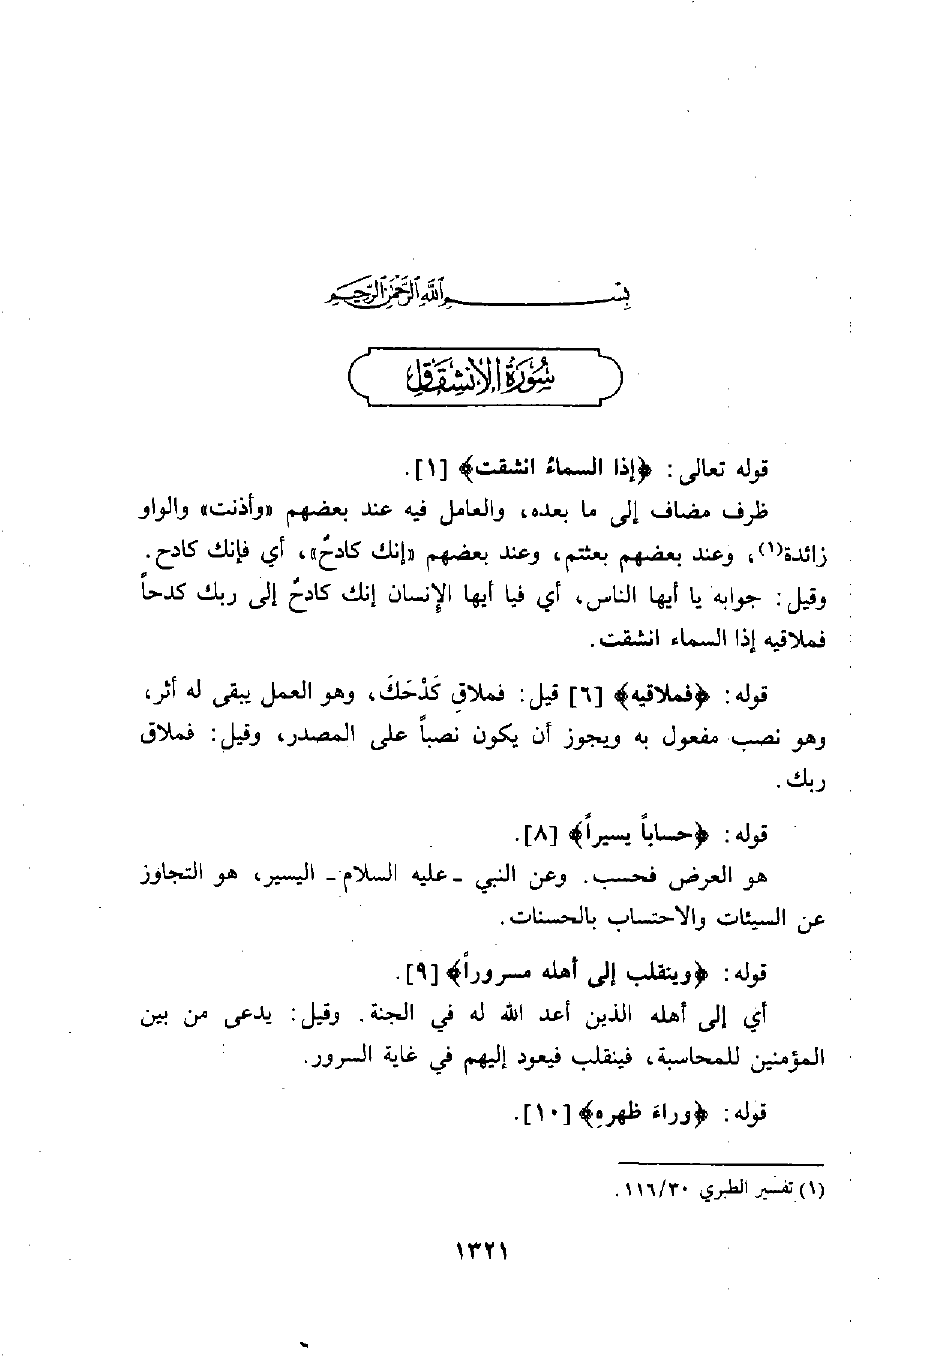 بسم الله الرحمن الرحيم
سورة الانشقاق
قوله تعالى: ﴿إذا السماءُ انشقت﴾ [١].
ظرف مضاف إلى ما بعده، والعامل فيه عند بعضهم «وأذنت» والواو
زائدة(١)، وعند بعضهم بعثتم، وعند بعضهم «إنك كادحٌ»، أي فإنك كادح.
وقيل: جوابه يا أيها الناس، أي فيا أيها الإنسان إنك كادحٌ إلى ربك كدحاً
فملاقيه إذا السماء انشقت.
قوله: ﴿فملاقيه﴾ [٦] قيل: فملاقٍ كَدْحَكَ، وهو العمل يبقى له أثر،
وهو نصب مفعول به ويجوز أن يكون نصباً على المصدر، وقيل: فملاق
ربك.
قوله: ﴿حساباً يسيراً﴾ [٨].
هو العرض فحسب. وعن النبي - عليه السلام - اليسير، هو التجاوز
عن السيئات والاحتساب بالحسنات.
قوله: ﴿وينقلب إلى أهله مسروراً﴾ [٩].
أي إلى أهله الذين أعد الله له في الجنة. وقيل: يدعى من بين
المؤمنين للمحاسبة، فينقلب فيعود إليهم في غاية السرور.
قوله: ﴿وراءَ ظهرهِ﴾ [١٠].
(١) تفسير الطبري ١١٦/٣٠.
١٣٢١